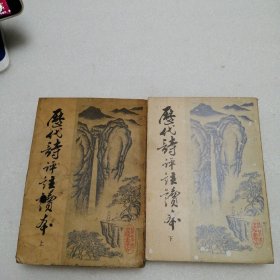 歷代詩評註讀本
上
歷代詩評註讀本
下